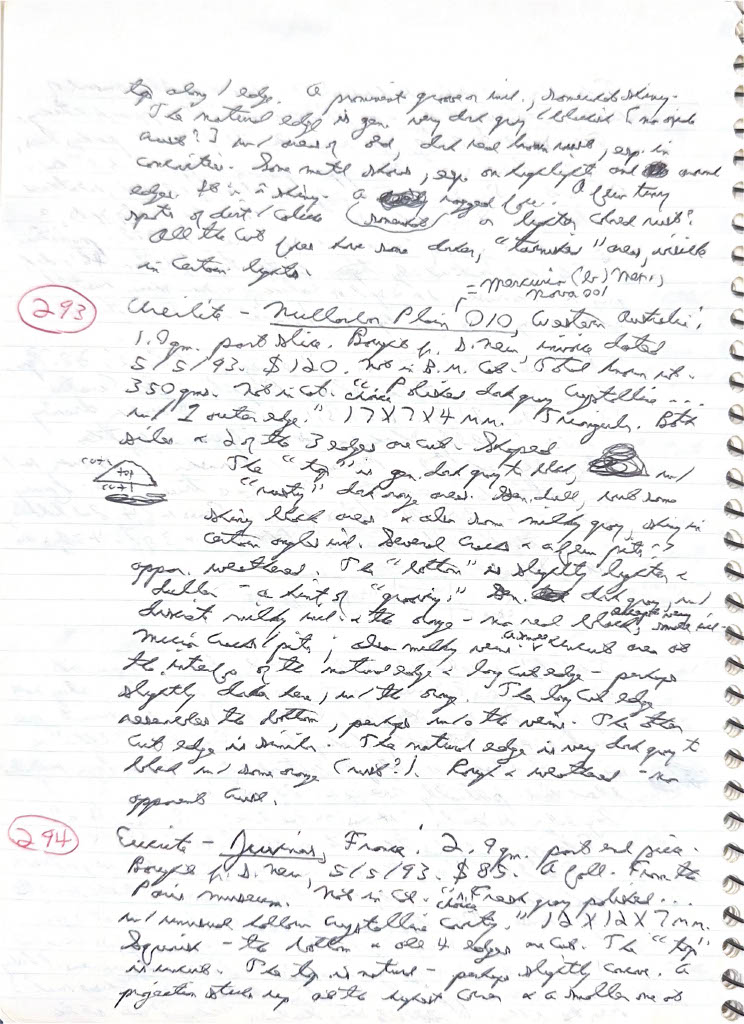 top along 1 edge. A prominent groove or incl., somewhat shiny.
The natural edge is gen. very dark gray / blackish [no
crust?] w/ areas of old, dark red brown rust, esp. in
concavities. Some metal shows, esp. on highlights and around
edges. is a shiny. a ragged . A few tiny
spots of dirt / (somewhat) or lighter rust?
All the cut faces have some darker, "tarnished" areas, visible
in certain lights.
= Mercurian (b)
Nova 001
293 Ureilite - Nullarbor Plain 010, Western Australia.
1.9 gm. part slice. Bought fr. D. New, invoice dated
5/5/93. $120. Not in B.M. Cat. Total known wt.
350 gms. Not in cat. "Polished dark gray crystalline ...
w/ 1 outer edge." 17 X 7 X 4 mm. Triangular. Both
sides & 2 of the 3 edges are cut. Shaped
cut top cut
The "top" is gen. dark gray to black, w/
"rusty" dark orange areas. Gen. dull, but some
shiny black areas & also some milky gray, shiny in
certain angles incl. Several cracks & a few pits,
appar. weathered. The "bottom" is slightly lighter &
duller - a hint of "grooving." Gen. dark gray, w/
discrete milky incl. & the orange - no real black, except very small incl.
Micro cracks / pits; also milky veins. uncut area at
the interface of the natural edge & long cut edge - perhaps
slightly darker here, w/ the orange. The long cut edge
resembles the bottom, perhaps w/o the veins. The other
cut edge is similar. The natural edge is very dark gray to
black w/ some orange (rust?). Rough & weathered - no
apparent crust.
294 Eucrite - Juvinas, France. 2.9 gm. part end piece.
Bought fr. D. New, 5/5/93. $85. A fall. From the
Paris museum. Not in cat. "Fresh gray polished ...
w/ unusual hollow crystalline cavity." 12 X 12 X 7 mm.
Squarish - the bottom & all 4 edges are cut. The "top"
is uncut. The top is natural - perhaps slightly concave. A
projection sticks up at the highest corner & a smaller one at